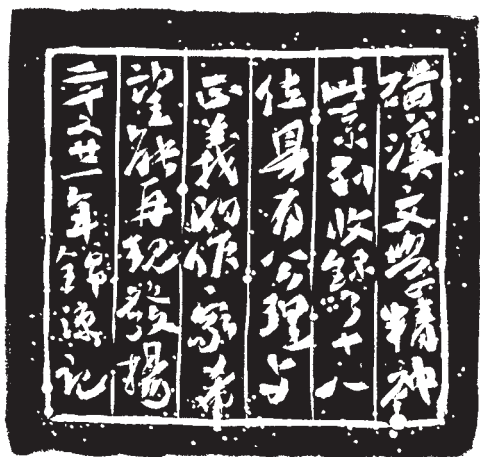 磺溪文學精神
此系列收錄了十八
位具有公理与
正義的作家希
望能再現發揚
二千又廿一年錦記